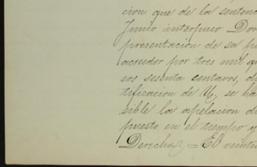 cion que de la sentenc
Junio interpuso Don
presentacion de su p
acceder por tres mil q
nos sesenta centavos, d
tificacion de
se ha
sible la apelacion d
puesto en el tiempo y
Derecho = El